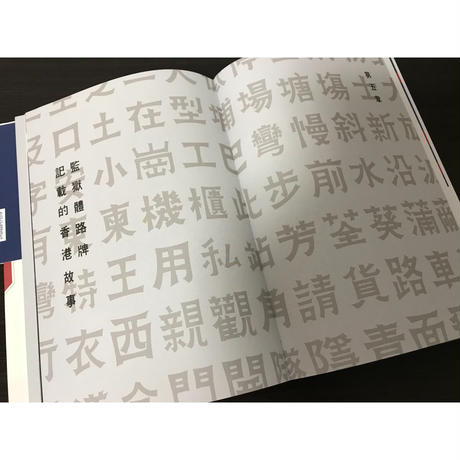 第五章
監獄體路牌
記載的香港故事
口土在型埔場塘塲士
小崗工巴彎慢斜新放
有東機櫃此步前水沿
彎特王用私站芳荃葵蒲
衣西親觀角請貨路車
門開隊隱青面